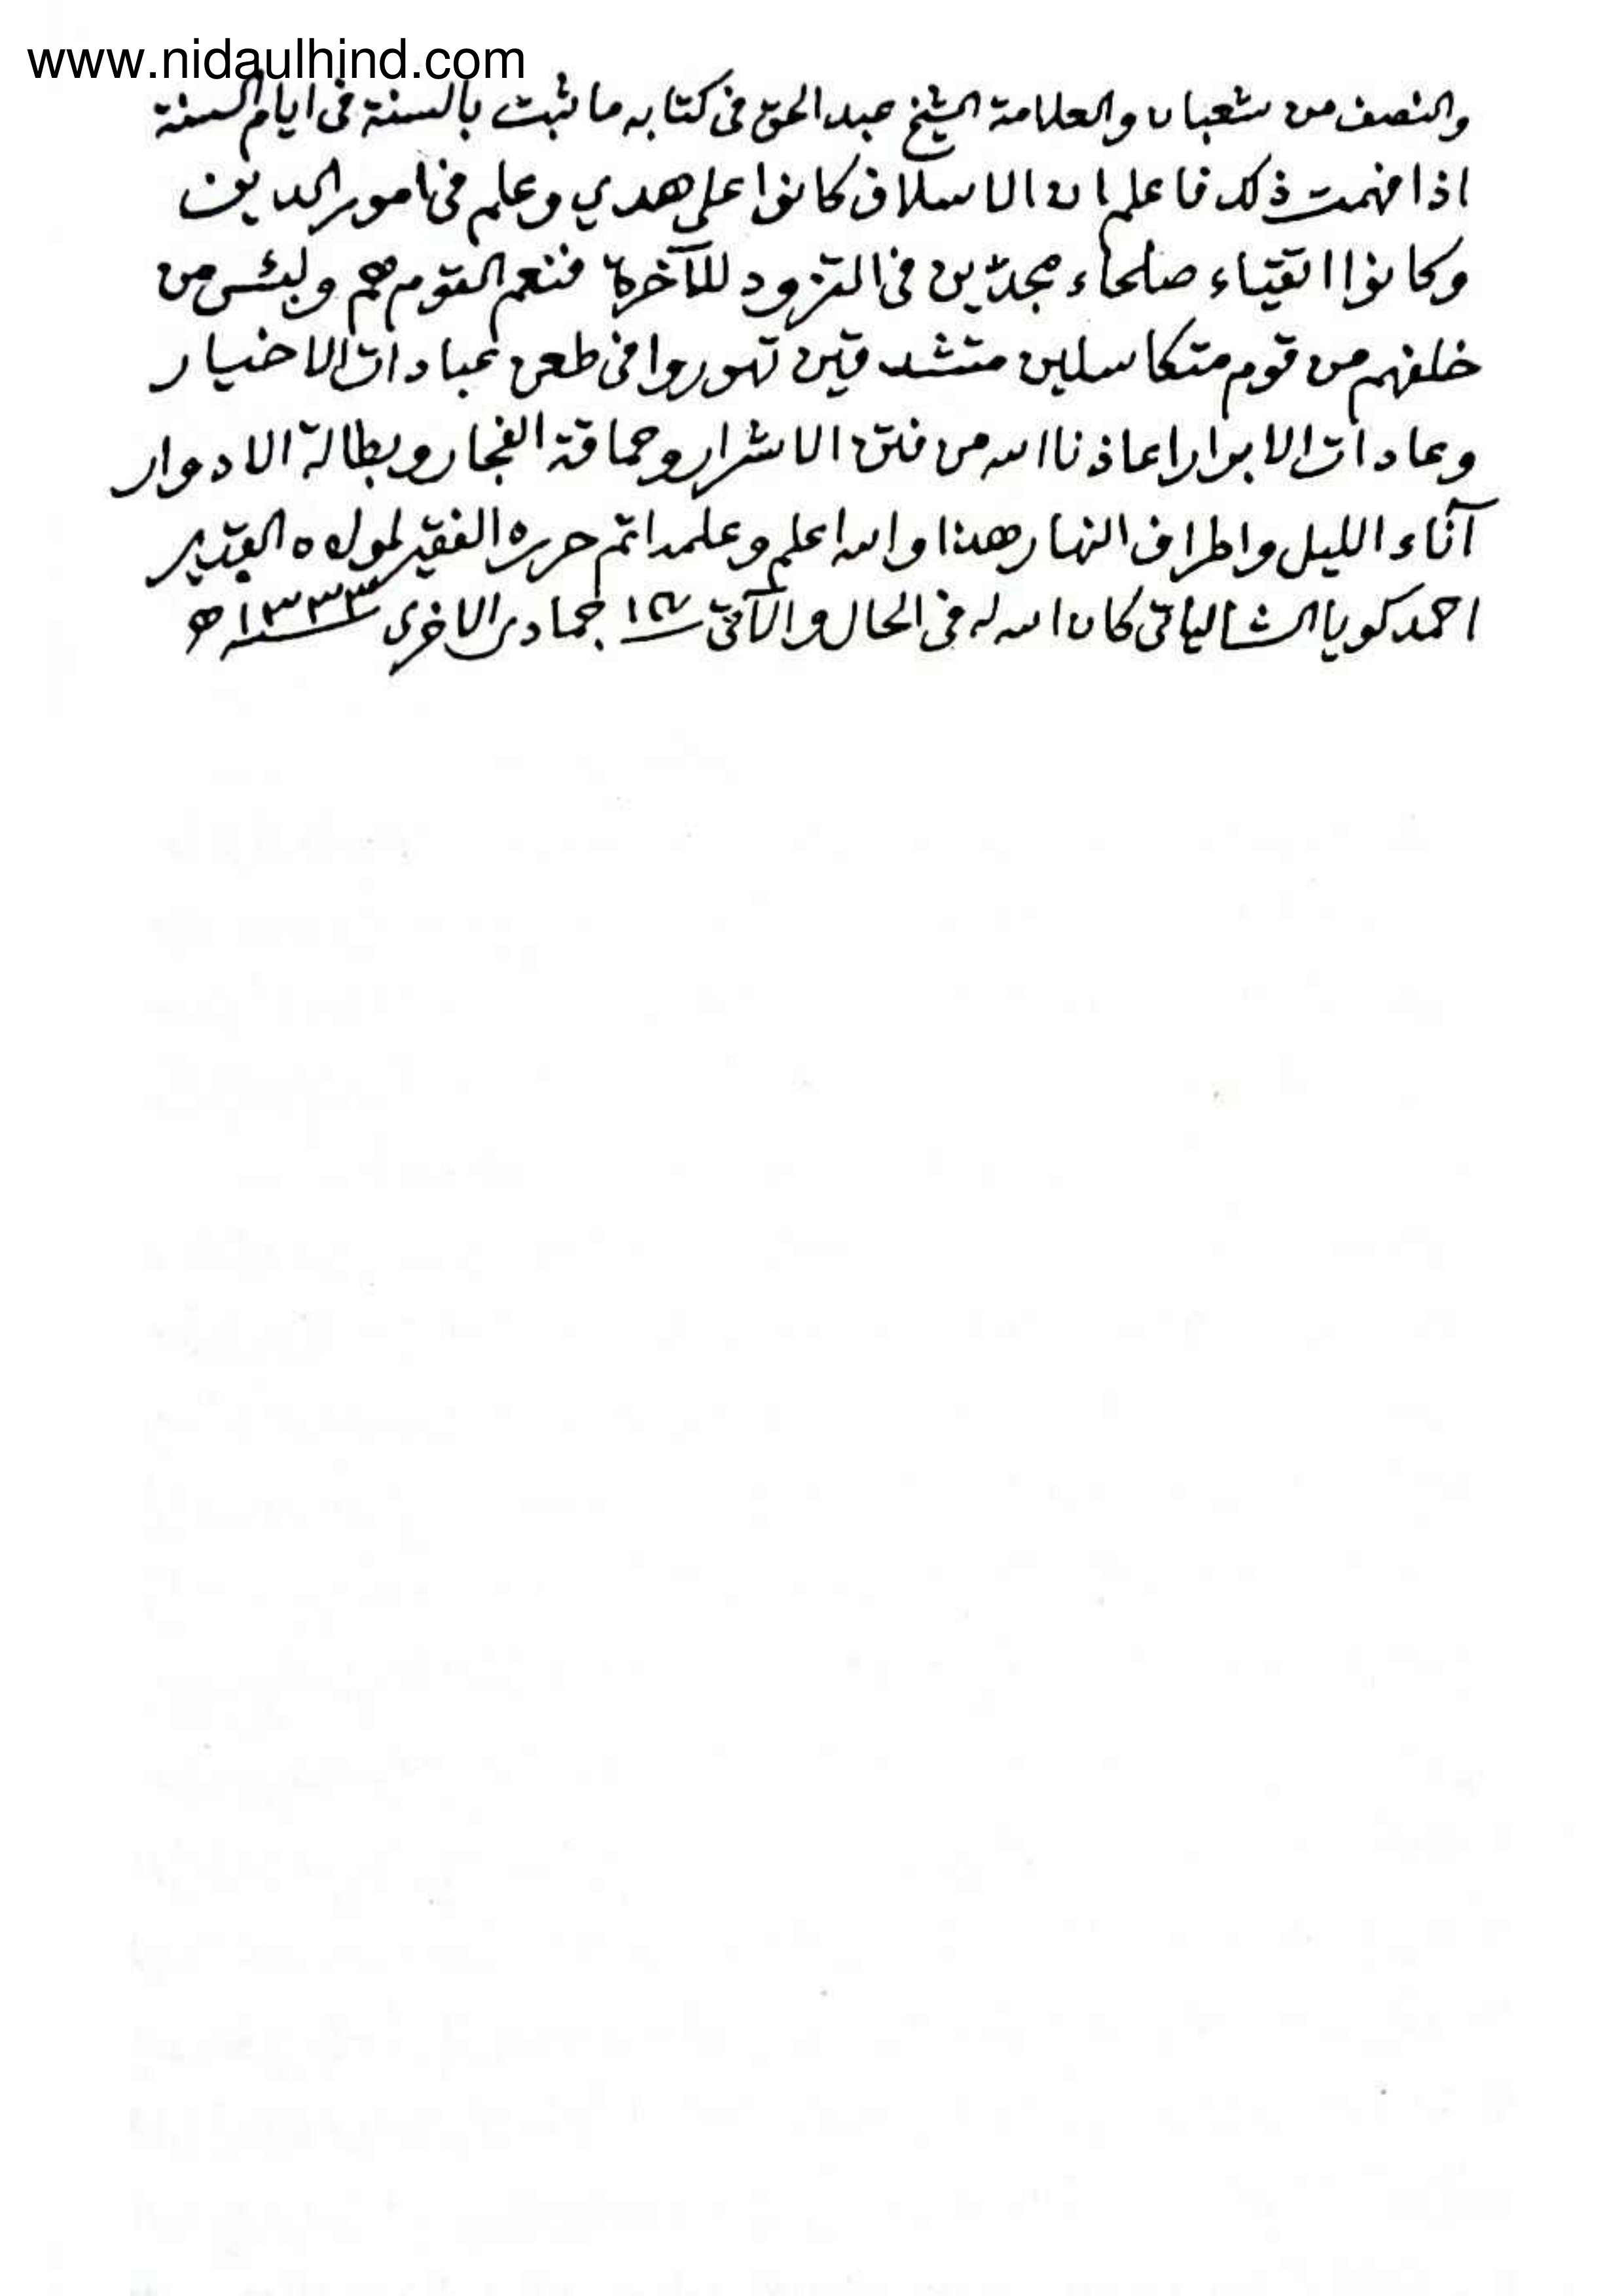 www.nidaulhind.com
والنصف من شعبان والعلامة الشيخ عبد الحق فى كتابه ما ثبت بالسنة فى ايام السنة
اذا فهمت ذلك فاعلم ان الاسلاف كانوا على هدي وعلم فى امور الدين
وكانوا اتقياء صلحاء مجدّين فى التزود للآخرة فنعم القوم هم ولبئس من
خلفهم من قوم متكاسلين متشدقين تهوروا فى طعن عبادات الاخيار
وعادات الابرار اعاذنا الله من فتن الاشرار وحماقة الفجار وبطالة الادوار
آناء الليل واطراف النهار هذا والله اعلم وعلمه اتم حرره الفقير لمولاه القدير
احمد كويا الشالياتى كان الله له فى الحال والآتى جمادى الاخرى سنة ١٣٣٣ ھ